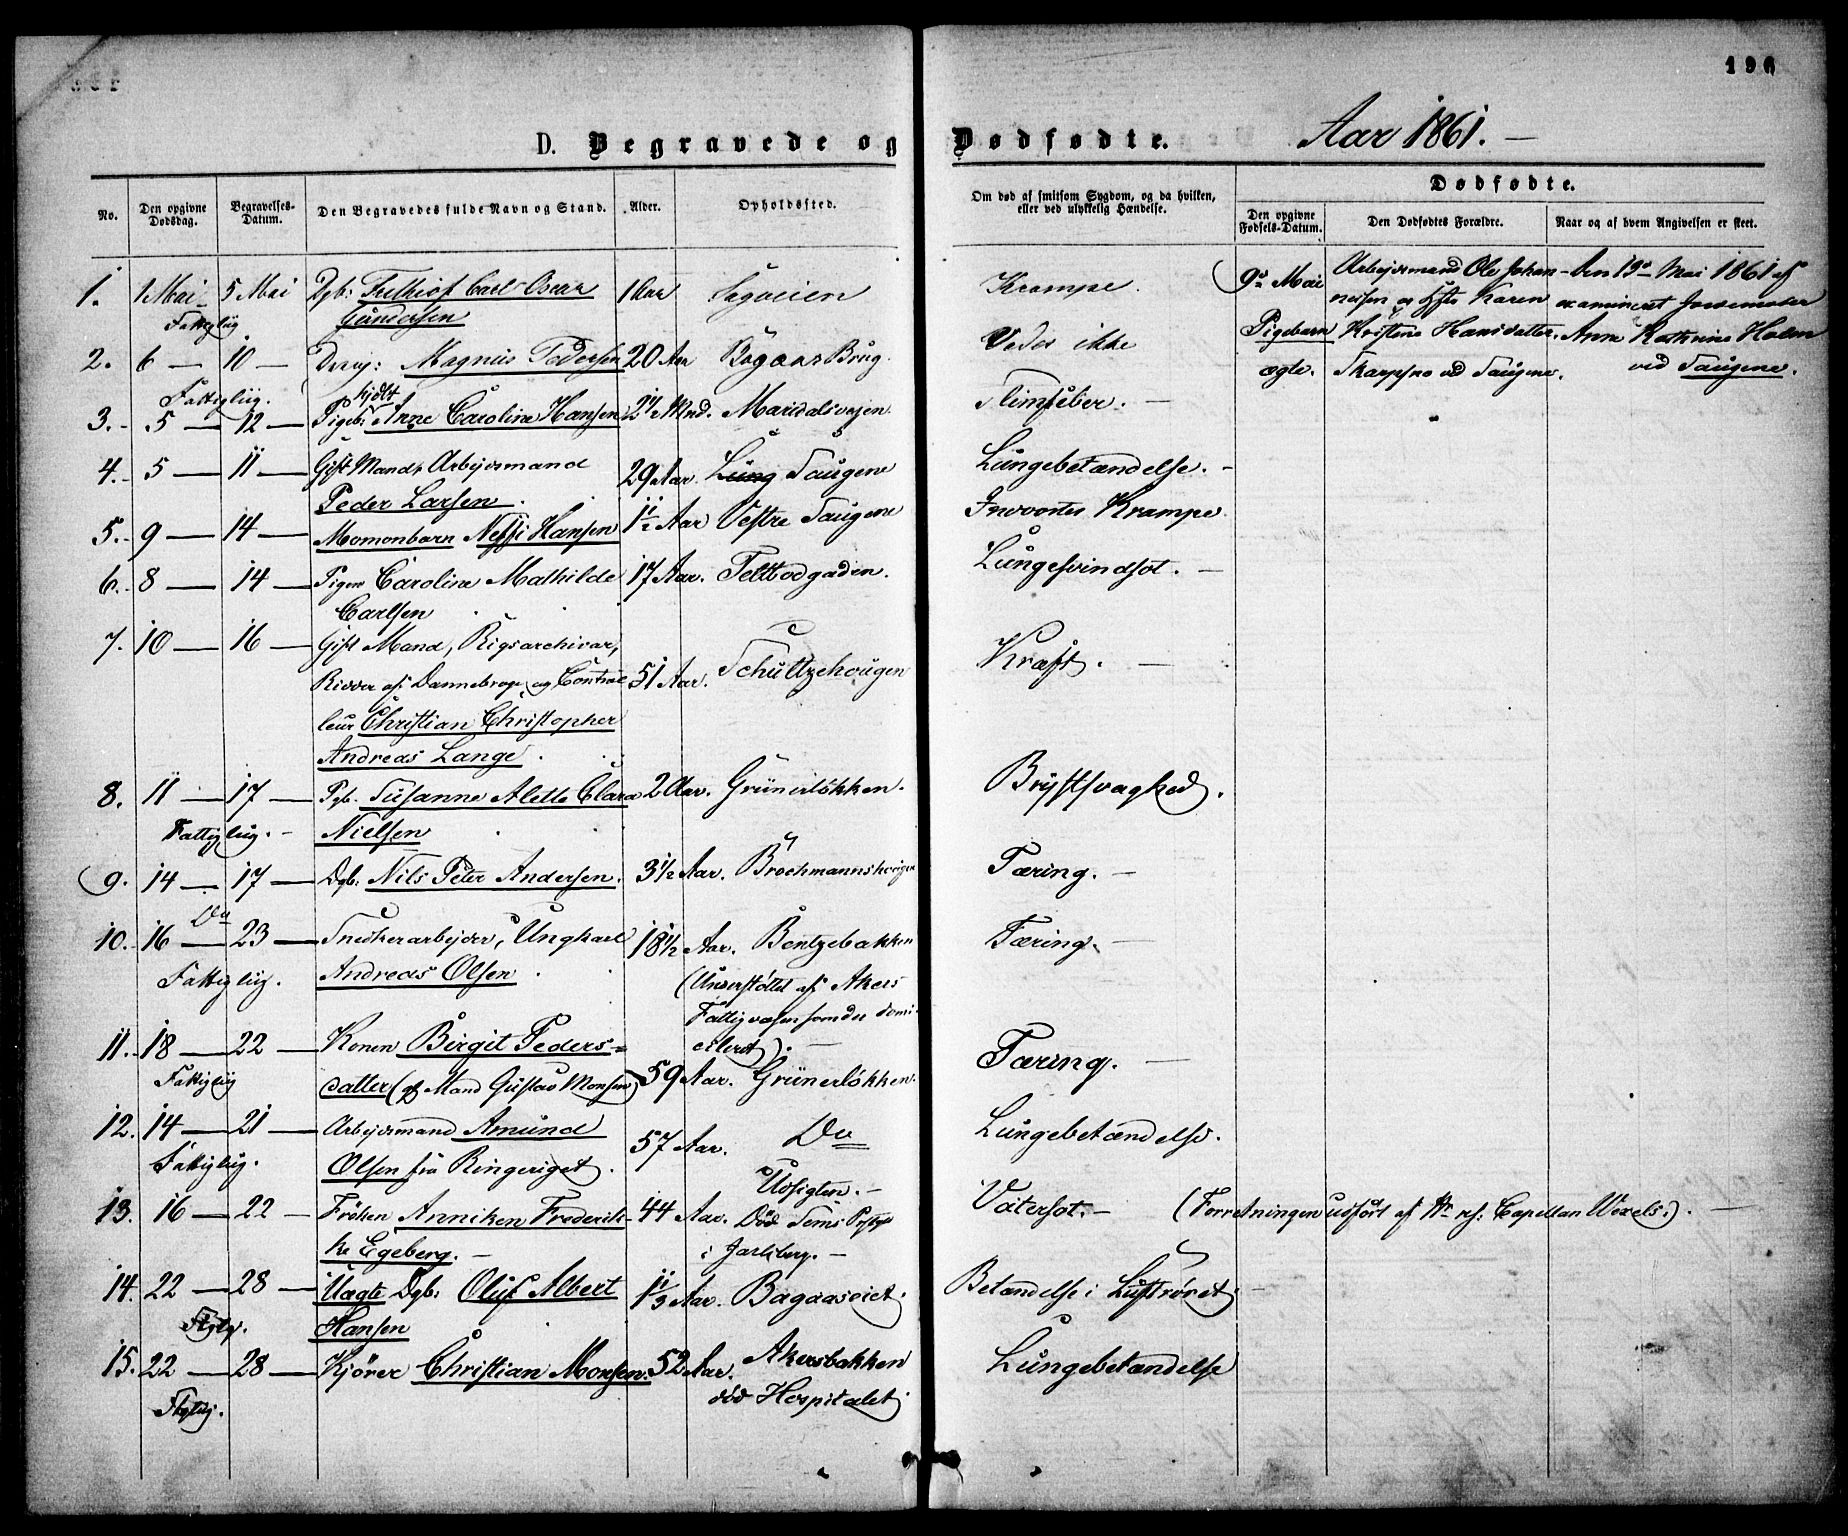 196
D. Begravede og Dødfødte. Aar 1861. —
No. Den opgivne Dødsdag. Begravelses-Datum. Den Begravedes fulde Navn og Stand. Alder. Opholdssted. Om død af smitsom Sygdom, og da hvilken, eller ved ulykkelig Hændelse. Dødfødte.
Den opgivne Fødsels-Datum. Den Dødfødtes Forældre. Naar og af hvem Angivelsen er skeet.
1. 1 Mai 5 Mai Dgb: Frithiof Carl Oscar 1 Aar Sagveien Krampe. 9de Mai Arbejdsmand Ole Johan- den 13de Mai 1861 af
Fattiglig Gundersen nesen og Hustru Karen examineret Jordemoder
2. 6 — 10 — Dreng: Magnus Pedersen 20 Aar Bøgaas Brug. Vides ikke Pigebarn Kristine Hansdatter Anne Kathrine Holm
Fattiglig. ægte. Skarpsno ved Saugene. ved Saugene.
3. 5 — 12 — Pigeb: Arne Caroline Hansen 2 1/2 Mnd. Maridalsvejen Slimfeber. —
4. 5 — 11 — Gift Mand, Arbejdsmand 29 Aar. Lung Saugene Lungebetændelse. —
Peder Larsen.
5. 9 — 14 — Momonbarn Nessi Hansen 1 1/2 Aar Vestre Saugene Indvortes Krampe
6. 8 — 14 — Pigen Caroline Mathilde 17 Aar. Teltbodgaden. Lungesvindsot. —
Carlsen
7. 10 — 16 — Gift Mand, Rigsarchivar, Kræft. —
Ridder af Dannebroge og Control- 51 Aar. Schultzehougen
leur Christian Christopher
Andreas Lange.
8. 11 — 17 — Pgb. Susanne Alette Clara 2 Aar. Grünerløkken. Brystsvaghed.
Fattiglig. — Nielsen
9. 14 — 17 — Dgb: Nils Peter Andersen. 3 1/2 Aar. Brochmannshougen Tæring. —
Do
10. 16 — 23 — Snedkerarbejder, Ungkarl 18 1/2 Aar. Bentzebakken Tæring. —
Fattiglig. Andreas Olsen. (Understøttet af Akers
Fattigvæsen som der domi-
11. 18 — 22 — Konen Birgit Peders- cileret). — Tæring. —
Fattiglig datter (af Mand Gustav Monsen) 59 Aar. Grünerløkken.
12. 14 — 21 — Arbejdsmand Amund 57 Aar. Do Lungebetændelse.
Fattiglig. Olsen fra Ringeriget.
Udsigten. —
13. 16 — 22 — Frøken Anniken Frederik- 44 Aar. Død Sems i Jarlsberg. — Vatersot. — (Forretningen udført af Hr. res: Capellan Wexels.). —
ke Egeberg. —
14. 22 — 28 — Uægte Dgb: Oluf Albert 1 1/3 Aar. Bagaasviet. Betændelse i Luftrøret. —
Ftglg. Hansen
15. 22 — 28 — Kjører Christian Monsen. 52 Aar. Akersbakken Lungebetændelse
Ftglig. død Hospitalet.